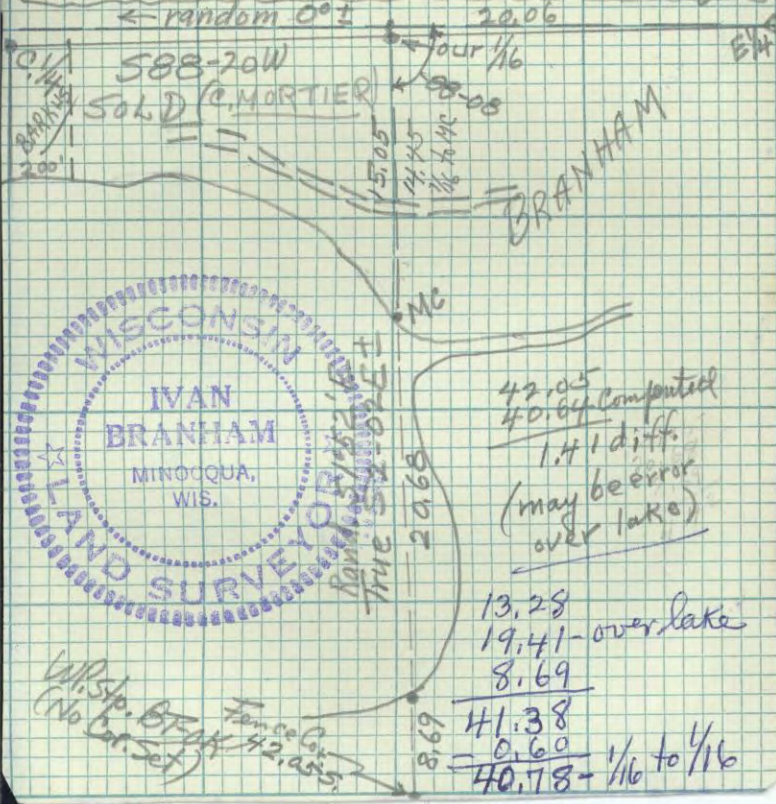 ← random 0° ±
20.06
our 1/16
E 1/4
C. 1/4
S88-20W
88-08
SOLD (C. MORTIER)
BARKUS
200'
15.05
14.45
1/16 to MC
BRANHAM
MC
WISCONSIN
IVAN
BRANHAM
MINOCQUA,
WIS.
LAND SURVEYOR
True S2-02E ±
20.68
42.05
40.64 Computed
1.41 diff.
(may be error
over lake)
13.28
19.41 - over lake
8.69
41.38
- 0.60
40.78 - 1/16 to 1/16
W.P. Stp. BT-OK
(No Cor. Set)
Fence Cor.
42.05 S.
8.69